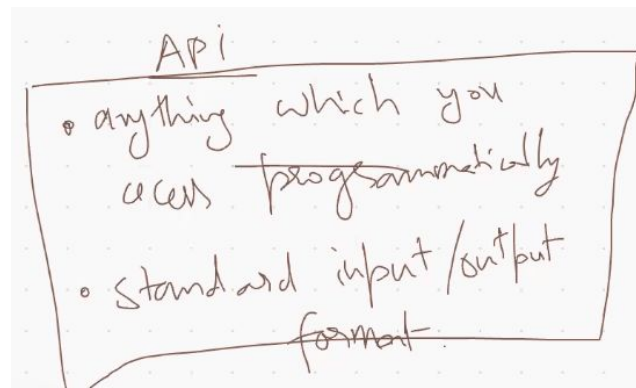 Api
• anything which you
acess programmatically
• standard input/output
format